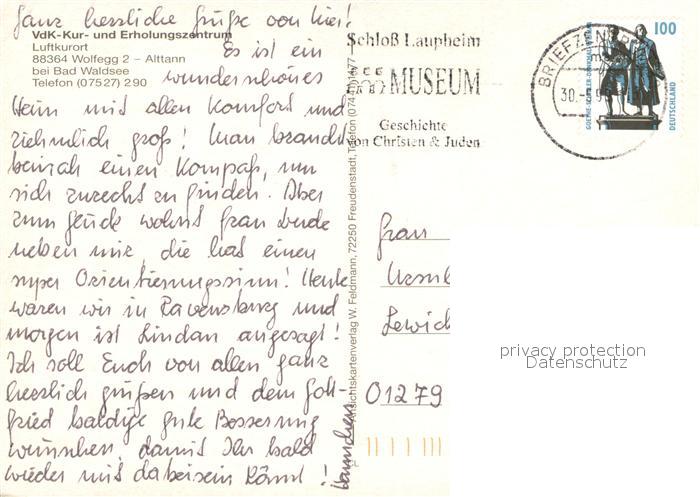 Ganz herzliche Grüße von hier!
VdK-Kur- und Erholungszentrum
Luftkurort
88364 Wolfegg 2 – Alttann
bei Bad Waldsee
Telefon (07527) 290
Es ist ein
wunderschönes
Heim mit allen Komfort und
ziehmlich groß! Man braucht
beinah einen Kompaß, um
sich zurecht zu finden. Aber
zum Glück wohnt Frau
neben mir, die hat einen
super Orientierungssinn! Heute
waren wir in Ravensburg und
morgen ist Lindau angesagt!
Ich soll Euch von allen ganz
herzlich grüßen und dem Gott-
fried baldige gute Besserung
wünschen, damit Ihr bald
wieder mit dabeisein könnt!
Ansichtskartenverlag W. Feldmann, 72250 Freudenstadt, Telefon
Schloß Laupheim
MUSEUM
Geschichte
von Christen & Juden
BRIEFZENTR
30.-5.9
100
GOETHE-SCHILLER-DENKMAL
DEUTSCHLAND
Frau
Ursul
Lewich
01279
privacy protection
Datenschutz